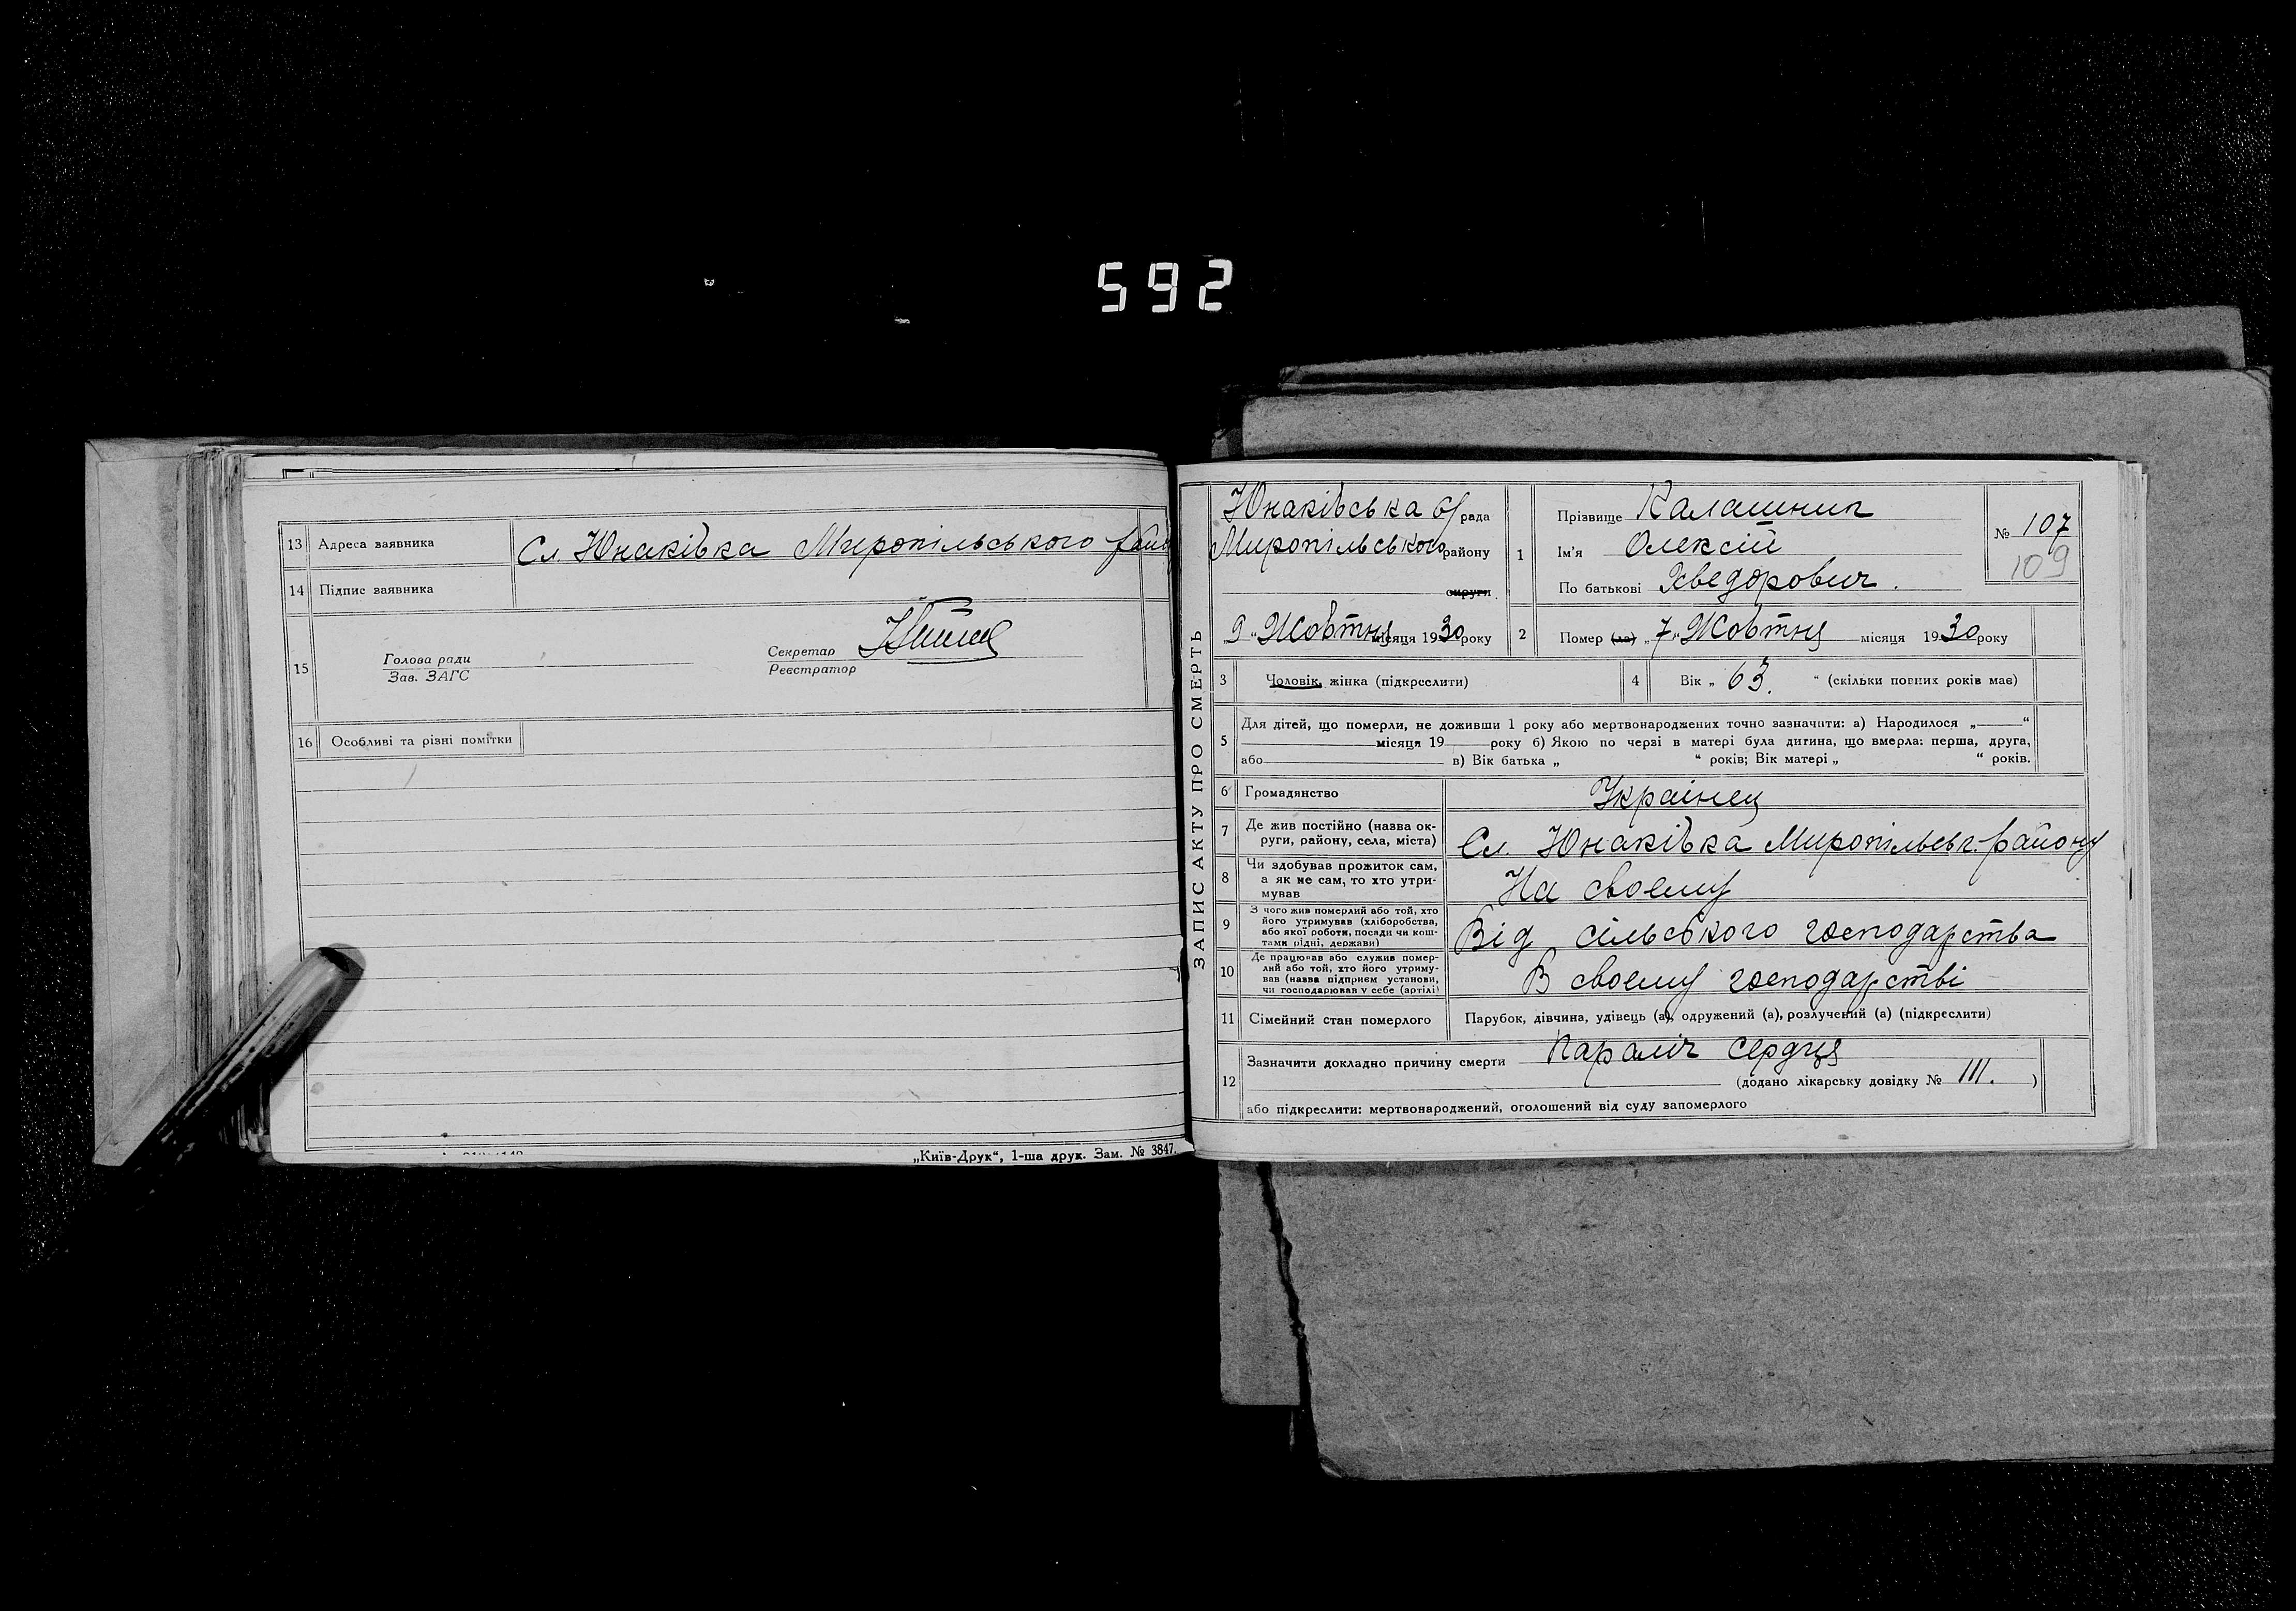 592
13 Адреса заявника Сл. Юнаківка Миропільського райо
14 Підпис заявника
15 Голова ради
Зав. ЗАГС
Секретар
Реєстратор
16 Особливі та різні помітки
„Київ-Друк“, 1-ша друк. Зам. № 3847.
ЗАПИС АКТУ ПРО СМЕРТЬ
Юнаківська с/рада
Миропільського району
округи
„9“ Жовтня місяця 1930 року
1 Прізвище Калашник
Ім'я Олексій
По батькові Хведорович.
№ 107
109
2 Помер (ла) „7“ Жовтня місяця 1930 року
3 Чоловік, жінка (підкреслити)
4 Вік „ 63. “ (скільки повних років має)
5 Для дітей, що померли, не доживши 1 року або мертвонароджених точно зазначити: а) Народилося „ “
місяця 19 року б) Якою по черзі в матері була дитина, що вмерла: перша, друга,
або в) Вік батька „ “ років; Вік матері „ “ років.
6 Громадянство Українец
7 Де жив постійно (назва ок-
руги, району, села, міста) Сл. Юнаківка Миропільськ. району
8 Чи здобував прожиток сам,
а як не сам, то хто утри-
мував На своєму
9 З чого жив померлий або той, хто
його утримував (хліборобства,
або якої роботи, посади чи кош-
тами рідні, держави) Від сільського господарства
10 Де працював або служив помер-
лий або той, хто його утриму-
вав (назва підприєм установи,
чи господарював у себе (артілі) В своєму господарстві
11 Сімейний стан померлого Парубок, дівчина, удівець (а), одружений (а), розлучений (а) (підкреслити)
12 Зазначити докладно причину смерти Параліч сердця
(додано лікарську довідку № 111. )
або підкреслити: мертвонароджений, оголошений від суду запомерлого